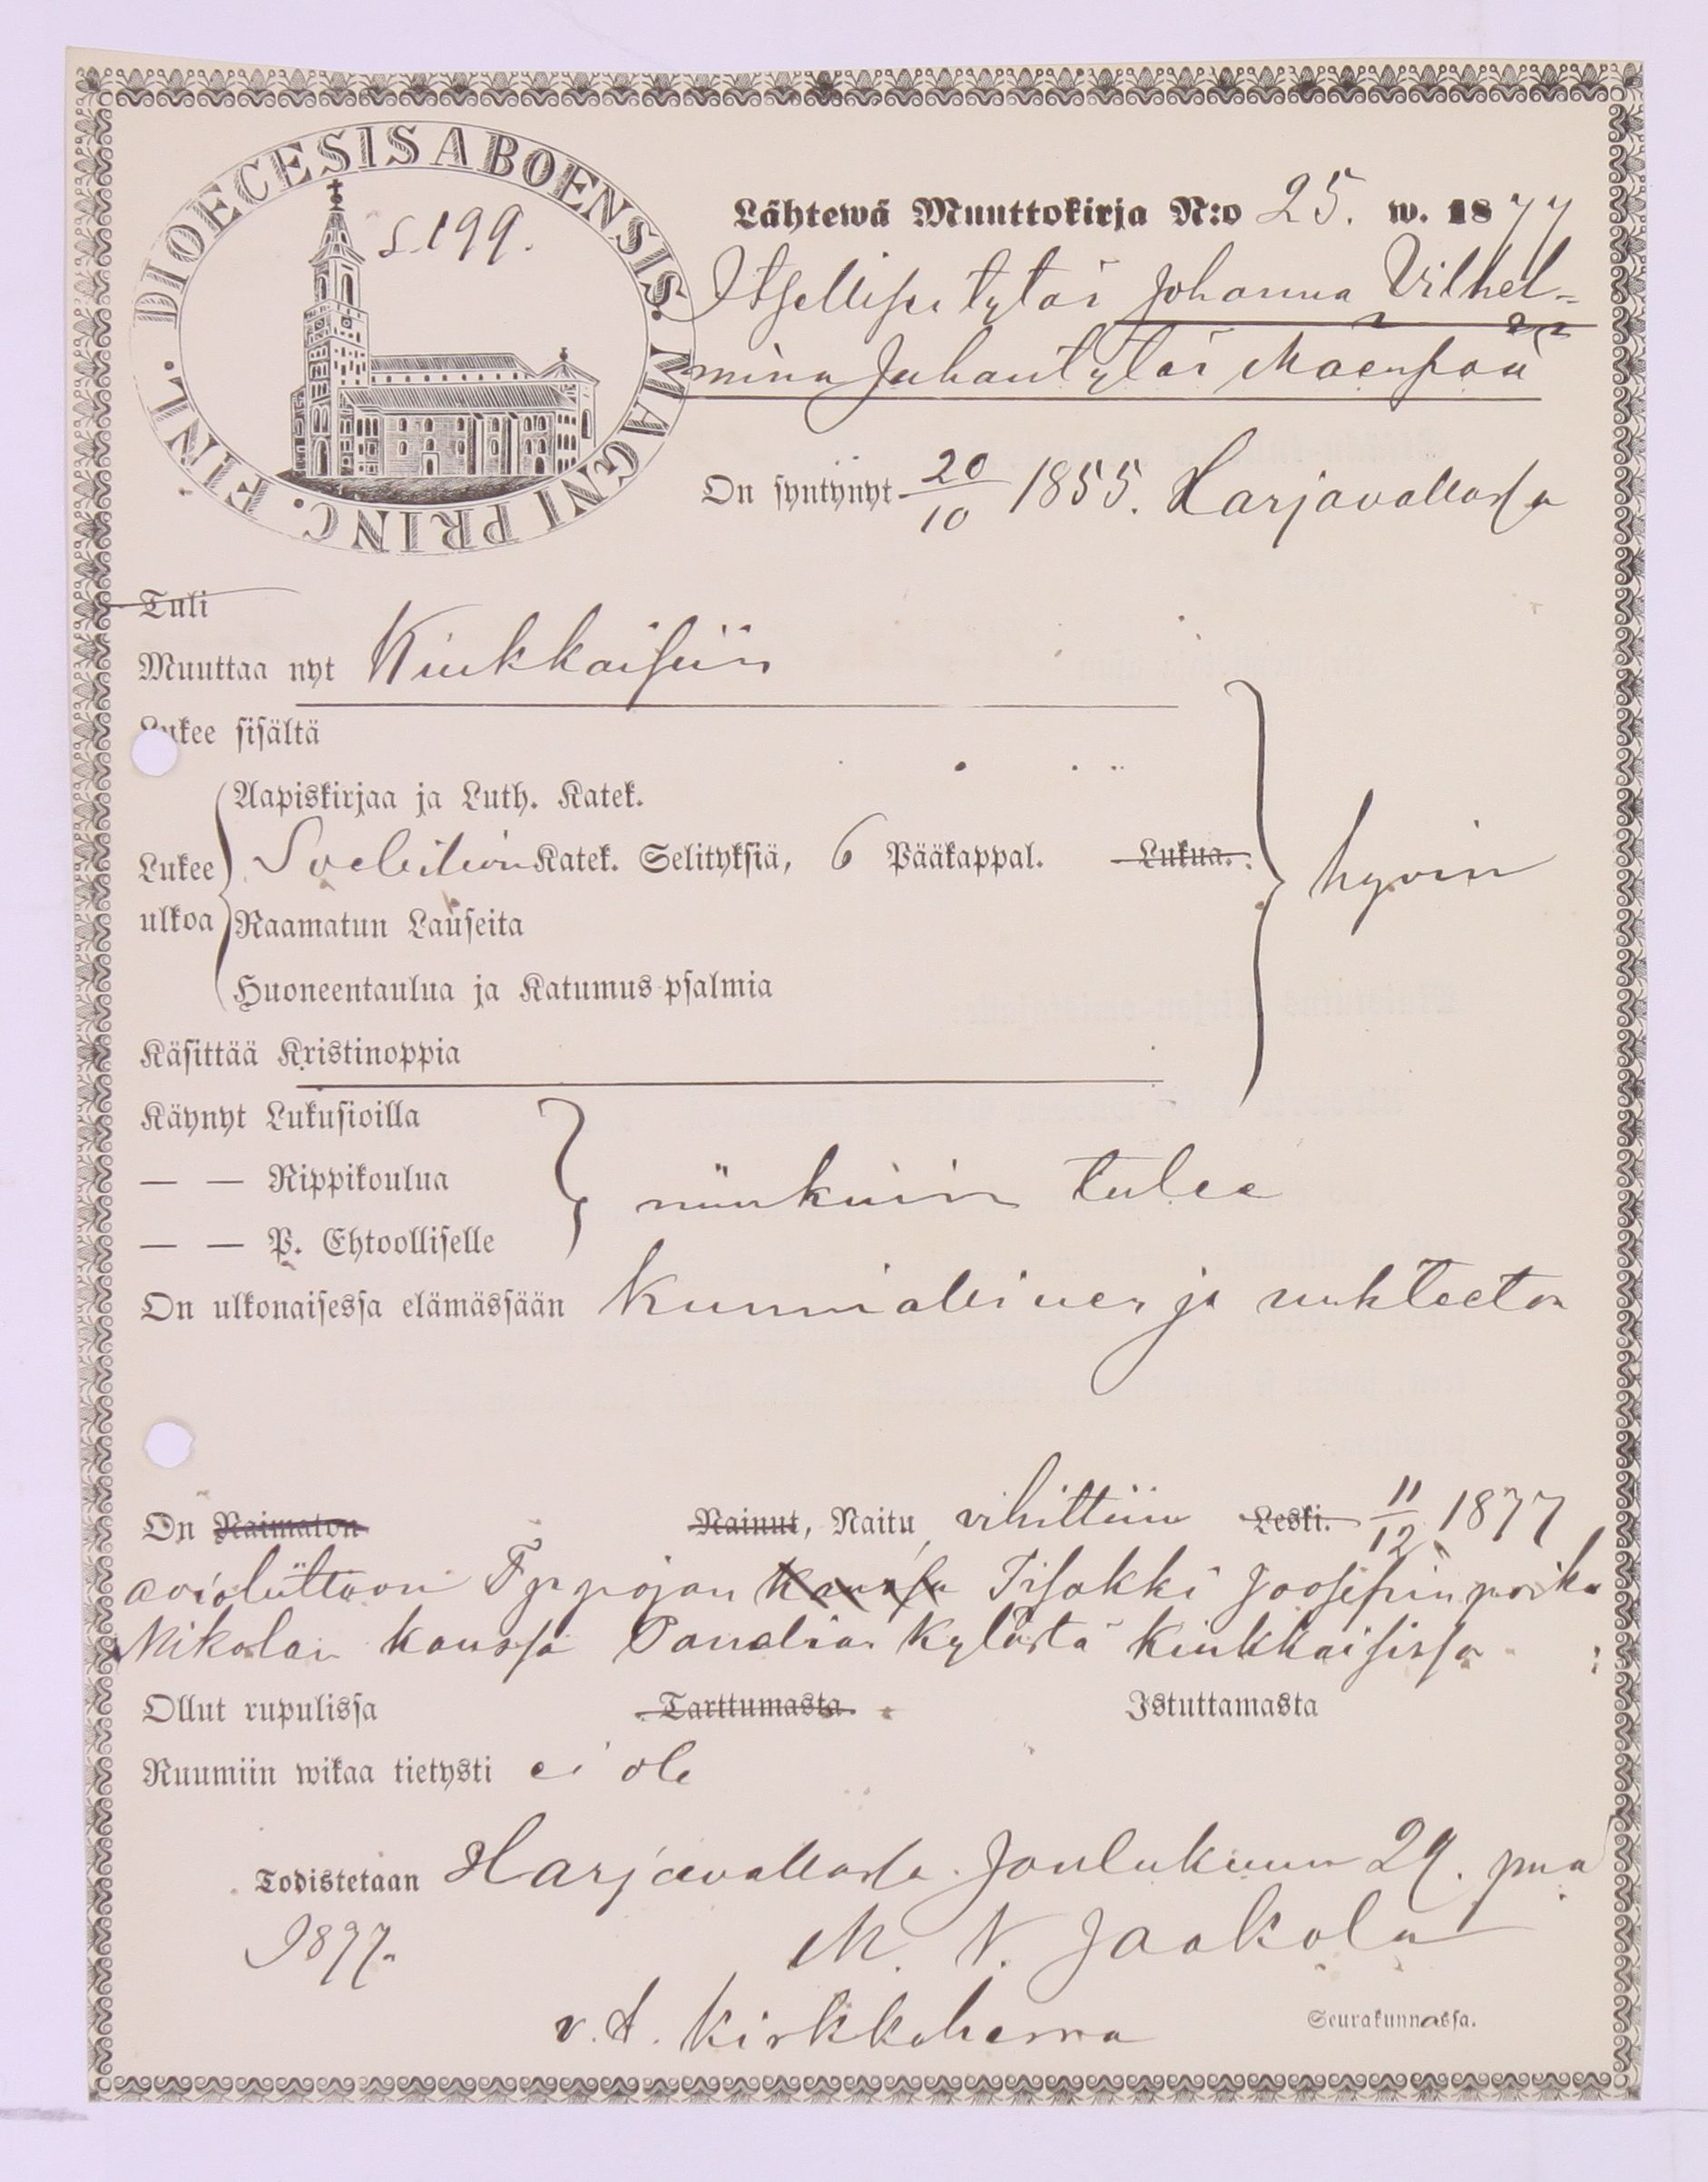 DIOECESIS ABOENSIS. MAGNI PRINC. FINL.
S. 199.
Lähtewä Muuttokirja N:o 25. w. 1877
Itsellisen tytär Johanna Vilhel-
mina Juhantytär Mäenpää
On syntynyt 20/10 1855. Harjavallassa
Tuli
Muuttaa nyt Kiukkaisiin
Lukee sisältä
Aapiskirjaa ja Luth. Katek.
Lukee Svebiliuin Katek. Selityksiä, 6 Pääkappal. Lukua.
hyvin
ulkoa Raamatun Lauseita
Huoneentaulua ja Katumus-psalmia
Käsittää Kristinoppia
Käynyt Lukusioilla
— — Rippikoulua
niinkuin tulee
— — P. Ehtoolliselle
On ulkonaisessa elämässään kunniallinen ja nuhteeton
On Naimaton Nainut, Naitu, vihittiin Leski. 11/12 1877
avioliittoon kanssa Iisakki Joosepin poika
Nikolan kanssa kylästä Kiukkaisissa
Ollut rupulissa Tarttumasta. Istuttamasta
Ruumiin wikaa tietysti ei ole
Todistetaan Harjavallassa Joulukuun 29. pnä
1877.
M. N. Jaakola
v.t. Kirkkoherra
Seurakunnassa.